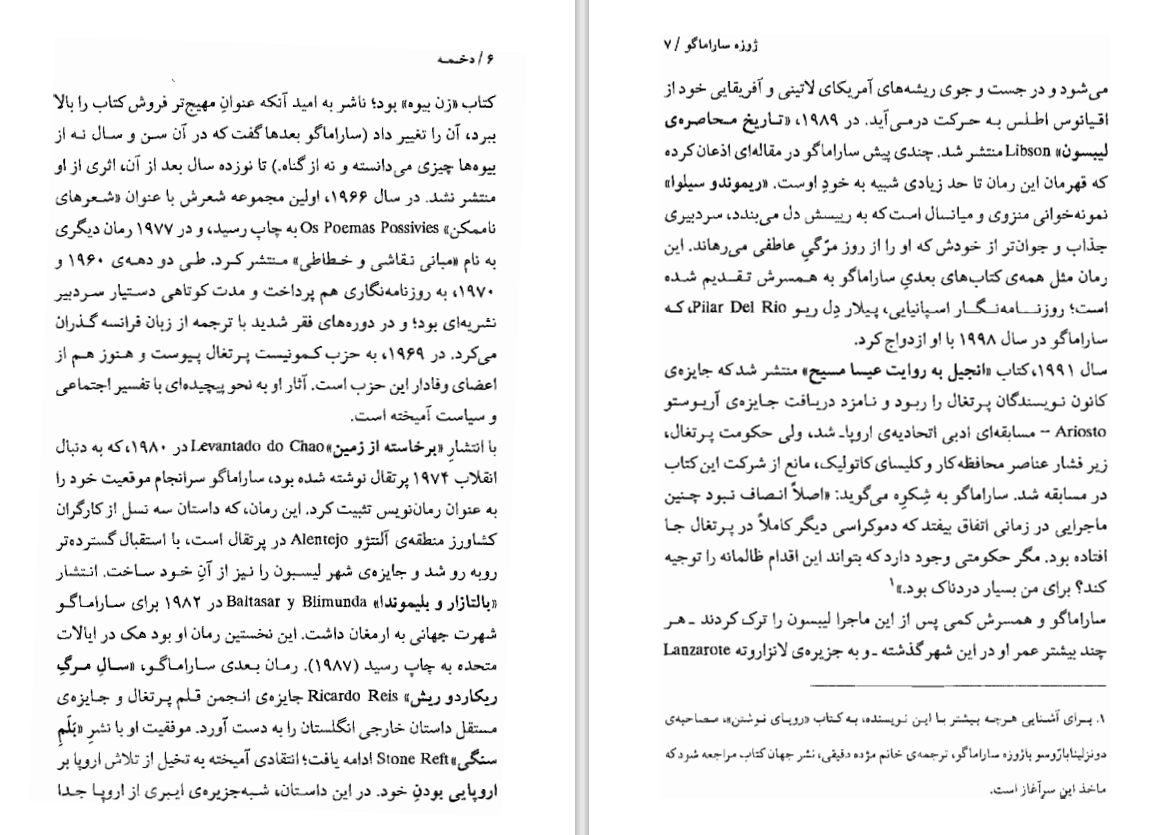 ۶ / دخمه
کتاب «زن بیوه» بود؛ ناشر به امید آنکه عنوانِ مهیج‌تر فروش کتاب را بالا
ببرد، آن را تغییر داد (ساراماگو بعدها گفت که در آن سن و سال نه از
بیوه‌ها چیزی می‌دانسته و نه از گناه.) تا نوزده سال بعد از آن، اثری از او
منتشر نشد. در سال ۱۹۶۶، اولین مجموعه شعرش با عنوان «شعرهای
ناممکن» Os Poemas Possivies به چاپ رسید، و در ۱۹۷۷ رمان دیگری
به نام «مبانی نقاشی و خطاطی» منتشر کرد. طی دو دهه‌ی ۱۹۶۰ و
۱۹۷۰، به روزنامه‌نگاری هم پرداخت و مدت کوتاهی دستیار سردبیر
نشریه‌ای بود؛ و در دوره‌های فقر شدید با ترجمه از زبان فرانسه گذران
می‌کرد. در ۱۹۶۹، به حزب کمونیست پرتغال پیوست و هنوز هم از
اعضای وفادار این حزب است. آثار او به نحو پیچیده‌ای با تفسیر اجتماعی
و سیاست آمیخته است.
با انتشارِ «برخاسته از زمین» Levantado do Chao در ۱۹۸۰، که به دنبال
انقلاب ۱۹۷۴ پرتقال نوشته شده بود، ساراماگو سرانجام موقعیت خود را
به عنوان رمان‌نویس تثبیت کرد. این رمان، که داستان سه نسل از کارگران
کشاورز منطقه‌ی آلنتژو Alentejo در پرتقال است، با استقبال گسترده‌تر
روبه رو شد و جایزه‌ی شهر لیسبون را نیز از آنِ خود ساخت. انتشار
«بالتازار و بلیموندا» Baltasar y Blimunda در ۱۹۸۲ برای ساراماگو
شهرت جهانی به ارمغان داشت. این نخستین رمان او بود هک در ایالات
متحده به چاپ رسید (۱۹۸۷). رمان بعدی ساراماگو، «سالِ مرگِ
ریکاردو ریش» Ricardo Reis جایزه‌ی انجمن قلم پرتغال و جایزه‌ی
مستقل داستان خارجی انگلستان را به دست آورد. موفقیت او با نشرِ «بَلَمِ
سنگی» Stone Reft ادامه یافت؛ انتقادی آمیخته به تخیل از تلاش اروپا بر
اروپایی بودنِ خود. در این داستان، شبه‌جزیره‌ی ایبری از اروپا جدا
ژوزه ساراماگو / ۷
می‌شود و در جست و جوی ریشه‌های آمریکای لاتینی و آفریقایی خود از
اقیانوس اطلس به حرکت درمی‌آید. در ۱۹۸۹، «تاریخ محاصره‌ی
لیبسون» Libson منتشر شد. چندی پیش ساراماگو در مقاله‌ای اذعان کرده
که قهرمان این رمان تا حد زیادی شبیه به خودِ اوست. «ریموندو سیلوا»
نمونه‌خوانی منزوی و میانسال است که به رییسش دل می‌بندد، سردبیری
جذاب و جوان‌تر از خودش که او را از روز مرّگیِ عاطفی می‌رهاند. این
رمان مثل همه‌ی کتاب‌های بعدیِ ساراماگو به همسرش تقدیم شده
است؛ روزنامه‌نگار اسپانیایی، پیلار دِل ریو Pilar Del Rio، که
ساراماگو در سال ۱۹۹۸ با او ازدواج کرد.
سال ۱۹۹۱، کتاب «انجیل به روایت عیسا مسیح» منتشر شد که جایزه‌ی
کانون نویسندگان پرتغال را ربود و نامزد دریافت جایزه‌ی آریوستو
Ariosto – مسابقه‌ای ادبی اتحادیه‌ی اروپا- شد، ولی حکومت پرتغال،
زیر فشار عناصر محافظه‌کار و کلیسای کاتولیک، مانع از شرکت این کتاب
در مسابقه شد. ساراماگو به شِکوِه می‌گوید: «اصلاً انصاف نبود چنین
ماجرایی در زمانی اتفاق بیفتد که دموکراسی دیگر کاملاً در پرتغال جا
افتاده بود. مگر حکومتی وجود دارد که بتواند این اقدام ظالمانه را توجیه
کند؟ برای من بسیار دردناک بود.»۱
ساراماگو و همسرش کمی پس از این ماجرا لیبسون را ترک کردند - هر
چند بیشتر عمر او در این شهر گذشته - و به جزیره‌ی لانزاروته Lanzarote
۱. برای آشنایی هرچه بیشتر با این نویسنده، به کتاب «رویای نوشتن»، مصاحبه‌ی
دونزلینا باژوسو با ژوزه ساراماگو، ترجمه‌ی خانم مژده دقیقی، نشر جهان کتاب مراجعه شود که
ماخذ این سرآغاز است.